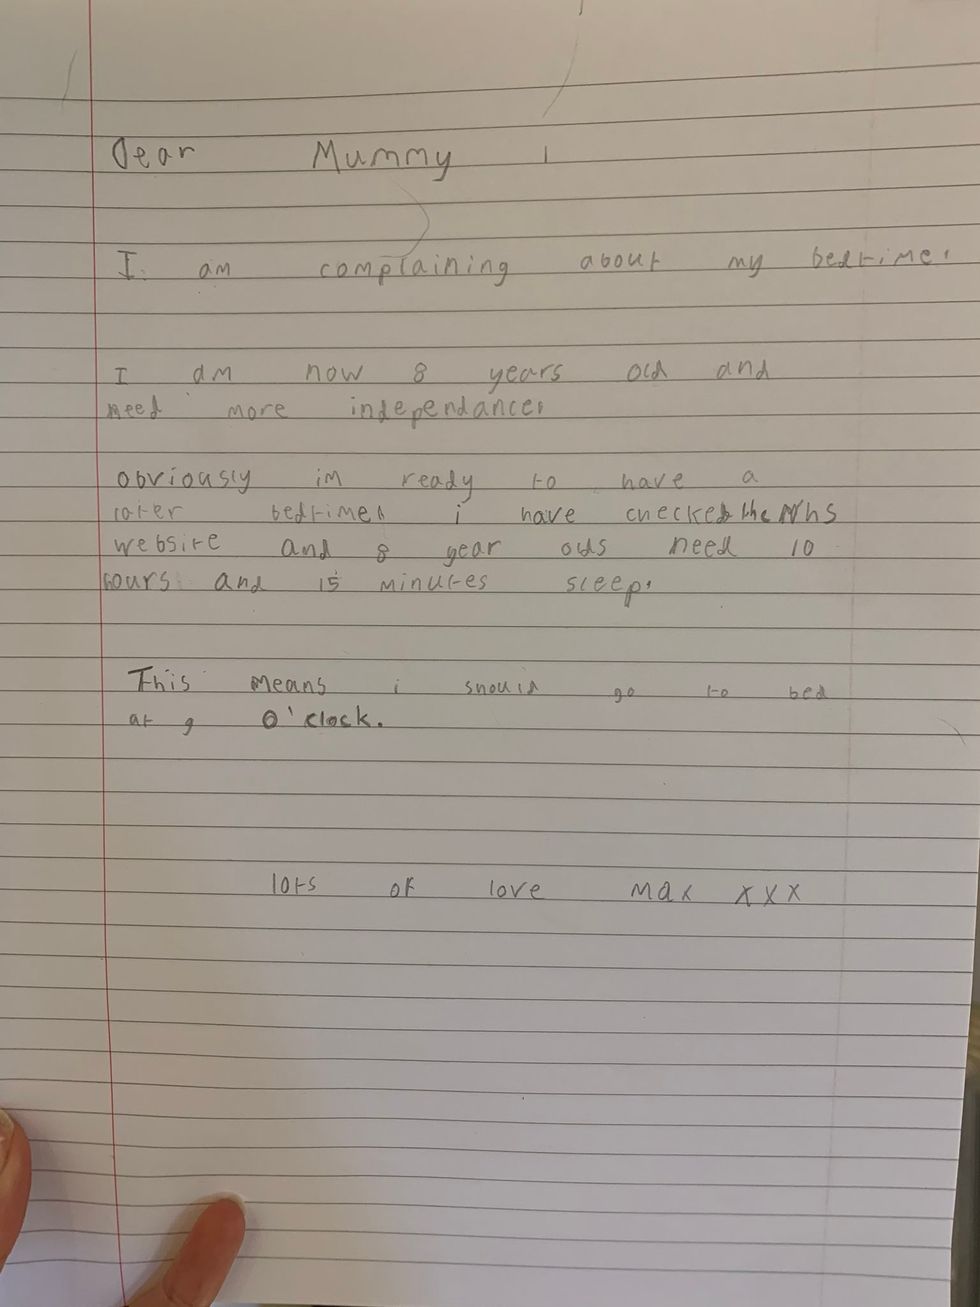 Dear Mummy,
I am complaining about my bedtime.
I am now 8 years old and
need more independance.
obviously im ready to have a
later bedtime. i have checked the Nhs
website and 8 year olds need 10
hours and 15 minutes sleep.
This means i should go to bed
at 9 O'clock.
lots of love max xxx